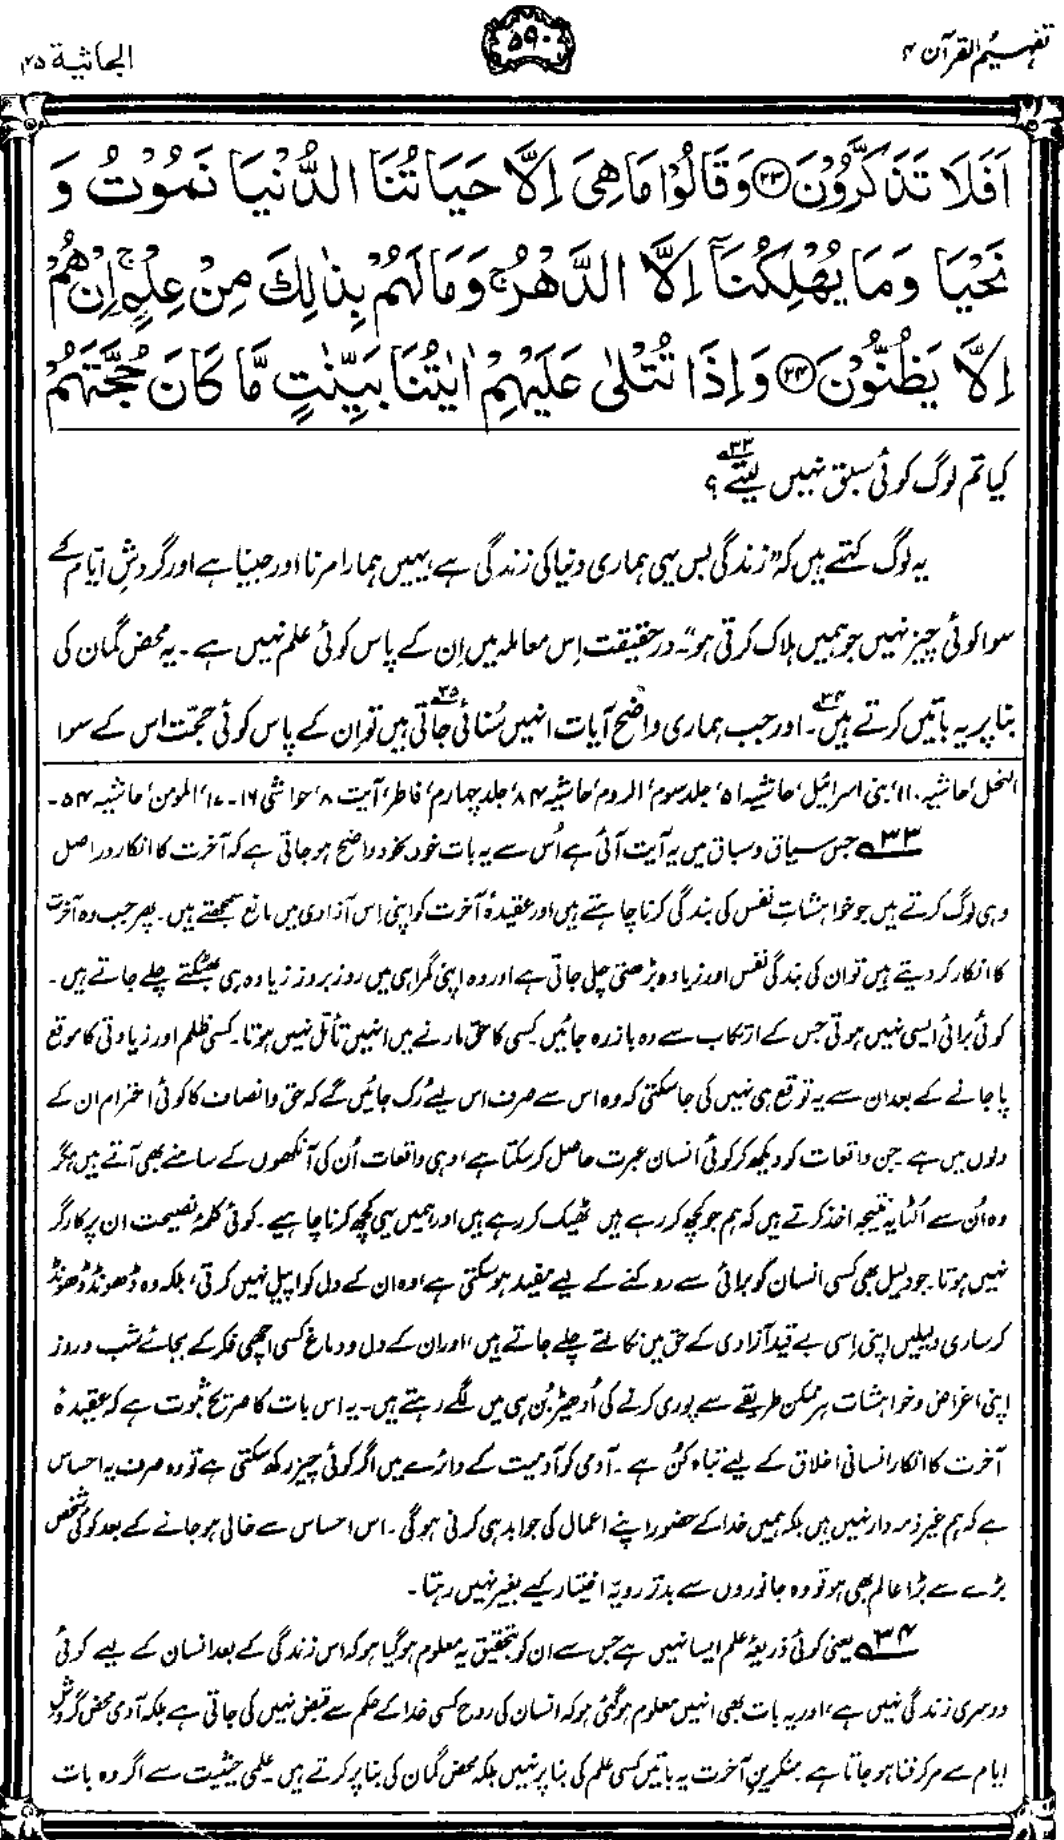 تفہیم القرآن ۴
۵۹۰
الجاثیة ۴۵
اَفَلَا تَذَكَّرُوْنَ ﴿۲۳﴾ وَقَالُوْا مَا هِیَ اِلَّا حَیَاتُنَا الدُّنْیَا نَمُوْتُ وَ
نَحْیَا وَمَا یُهْلِكُنَاۤ اِلَّا الدَّهْرُ ۚ وَمَا لَهُمْ بِذٰلِكَ مِنْ عِلْمٍ ۚ اِنْ هُمْ
اِلَّا یَظُنُّوْنَ ﴿۲۴﴾ وَاِذَا تُتْلٰی عَلَیْهِمْ اٰیٰتُنَا بَیِّنٰتٍ مَّا كَانَ حُجَّتَهُمْ
کیا تم لوگ کوئی سبق نہیں لیتے۳۳؟
یہ لوگ کہتے ہیں کہ ”زندگی بس یہی ہماری دنیا کی زندگی ہے، یہیں ہمارا مرنا اور جینا ہے اور گردشِ ایّام کے
سوا کوئی چیز نہیں جو ہمیں ہلاک کرتی ہو“۔ درحقیقت اِس معاملہ میں اِن کے پاس کوئی علم نہیں ہے۔ یہ محض گمان کی
بنا پر یہ باتیں کرتے ہیں۳۴۔ اور جب ہماری واضح آیات انہیں سُنائی جاتی۳۵ ہیں تو اِن کے پاس کوئی حجّت اس کے سوا
النحل، حاشیہ ۱۱۰، بنی اسرائیل، حاشیہ ۵۱، جلد سوم، الروم، حاشیہ ۸۴، جلد چہارم، فاطر، آیت ۸، حواشی ۱۶۔۱۷، المومن، حاشیہ ۵۴۔
۳۳ جس سیاق و سباق میں یہ آیت آئی ہے اُس سے یہ بات خود بخود واضح ہو جاتی ہے کہ آخرت کا انکار دراصل
وہی لوگ کرتے ہیں جو خواہشاتِ نفس کی بندگی کرنا چاہتے ہیں اور عقیدۂ آخرت کو اپنی اس آزادی میں مانع سمجھتے ہیں۔ پھر جب وہ آخرت
کا انکار کر دیتے ہیں تو ان کی بندگیٔ نفس اور زیادہ بڑھتی چلی جاتی ہے اور وہ اپنی گمراہی میں روز بروز زیادہ ہی بھٹکتے چلے جاتے ہیں۔
کوئی برائی ایسی نہیں ہوتی جس کے ارتکاب سے وہ باز رہ جائیں۔ کسی کا حق مارنے میں انہیں تأمل نہیں ہوتا۔ کسی ظلم اور زیادتی کا موقع
پا جانے کے بعد ان سے یہ توقع ہی نہیں کی جا سکتی کہ وہ اس سے صرف اس لیے رُک جائیں گے کہ حق و انصاف کا کوئی احترام ان کے
دلوں میں ہے۔ جن واقعات کو دیکھ کر کوئی انسان عبرت حاصل کر سکتا ہے، وہی واقعات اُن کی آنکھوں کے سامنے بھی آتے ہیں، مگر
وہ اُن سے اُلٹا یہ نتیجہ اخذ کرتے ہیں کہ ہم جو کچھ کر رہے ہیں ٹھیک کر رہے ہیں اور ہمیں یہی کچھ کرنا چاہیے۔ کوئی کلمۂ نصیحت ان پر کارگر
نہیں ہوتا۔ جو دلیل بھی کسی انسان کو برائی سے روکنے کے لیے مفید ہو سکتی ہے، وہ ان کے دل کو اپیل نہیں کرتی، بلکہ وہ ڈھونڈ ڈھونڈ
کر ساری دلیلیں اپنی اِسی بے قید آزادی کے حق میں نکالتے چلے جاتے ہیں، اور ان کے دل و دماغ کسی اچھی فکر کے بجائے شب و روز
اپنی اغراض و خواہشات ہر ممکن طریقے سے پوری کرنے کی اُدھیڑ بُن ہی میں لگے رہتے ہیں۔ یہ اس بات کا صریح ثبوت ہے کہ عقیدۂ
آخرت کا انکار انسانی اخلاق کے لیے تباہ کُن ہے۔ آدمی کو آدمیت کے دائرے میں اگر کوئی چیز رکھ سکتی ہے تو وہ صرف یہ احساس
ہے کہ ہم غیر ذمہ دار نہیں ہیں بلکہ ہمیں خدا کے حضور اپنے اعمال کی جواب دہی کرنی ہوگی۔ اس احساس سے خالی ہو جانے کے بعد کوئی شخص
بڑے سے بڑا عالم بھی ہو تو وہ جانوروں سے بدتر رویّہ اختیار کیے بغیر نہیں رہتا۔
۳۴ یعنی کوئی ذریعۂ علم ایسا نہیں ہے جس سے ان کو بتحقیق یہ معلوم ہو گیا ہو کہ اس زندگی کے بعد انسان کے لیے کوئی
دوسری زندگی نہیں ہے، اور یہ بات بھی انہیں معلوم ہو گئی ہو کہ انسان کی روح کسی خدا کے حکم سے قبض نہیں کی جاتی ہے بلکہ آدمی محض گردشِ
ایام سے مر کر فنا ہو جاتا ہے۔ منکرینِ آخرت یہ باتیں کسی علم کی بنا پر نہیں بلکہ محض گمان کی بنا پر کرتے ہیں۔ علمی حیثیت سے اگر وہ بات